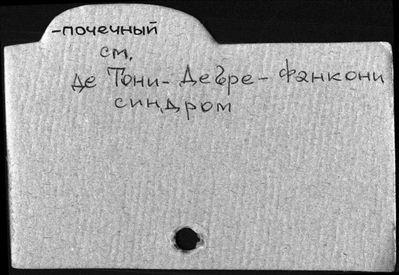 -почечный
см.
де Тони-Дебре-Фанкони
синдром